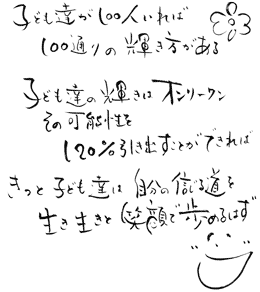 子ども達が100人いれば
100通りの輝き方がある
子ども達の輝きはオンリーワン
その可能性を
120%引き出すことができれば
きっと子ども達は自分の信じる道を
生き生きと笑顔で歩めるはず